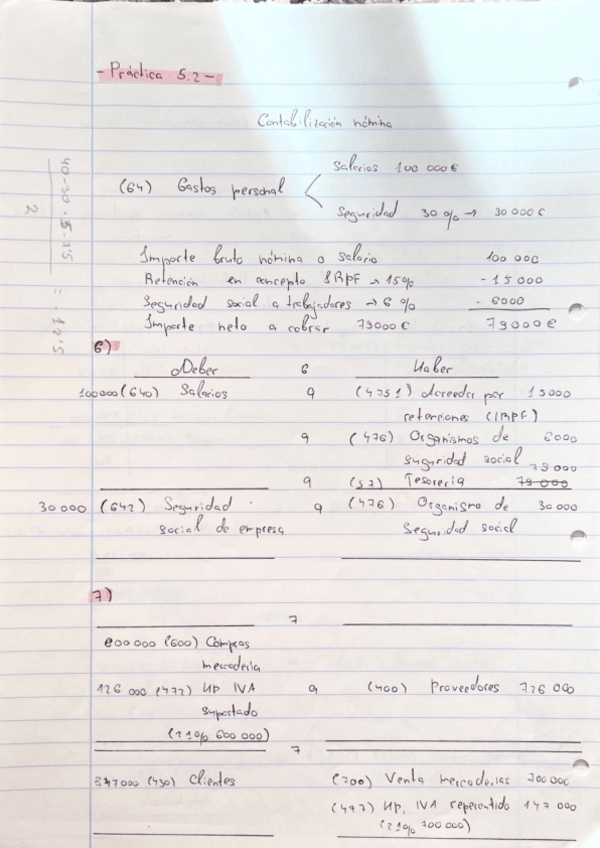 - Práctica 5.2 -
Contabilización nómina
Salarios 100 000 €
(64) Gastos personal
Seguridad 30 % → 30 000 €
Importe bruto nómina o salario 100 000
Retención en concepto IRPF → 15% - 15 000
Seguridad social a trabajadores → 6 % - 6000
Importe neto a cobrar 79000 € 79000 €
6)
Deber 6 Haber
100000 (640) Salarios a (4751) Acreedor por 15000
retenciones (IRPF)
a (476) Organismos de 6000
suguridad social
79000
a (57) Tesoreria 79 000
30 000 (642) Seguridad a (476) Organismo de 30 000
social de empresa Seguridad social
7)
7
600 000 (600) Compras
mercaderia
126 000 (472) HP IVA a (400) Proveedores 726 000
suportado
(21% 600 000)
7
847000 (430) Clientes (700) Venta mercaderias 700 000
(477) HP. IVA repercutido 147 000
(21% 700 000)
2